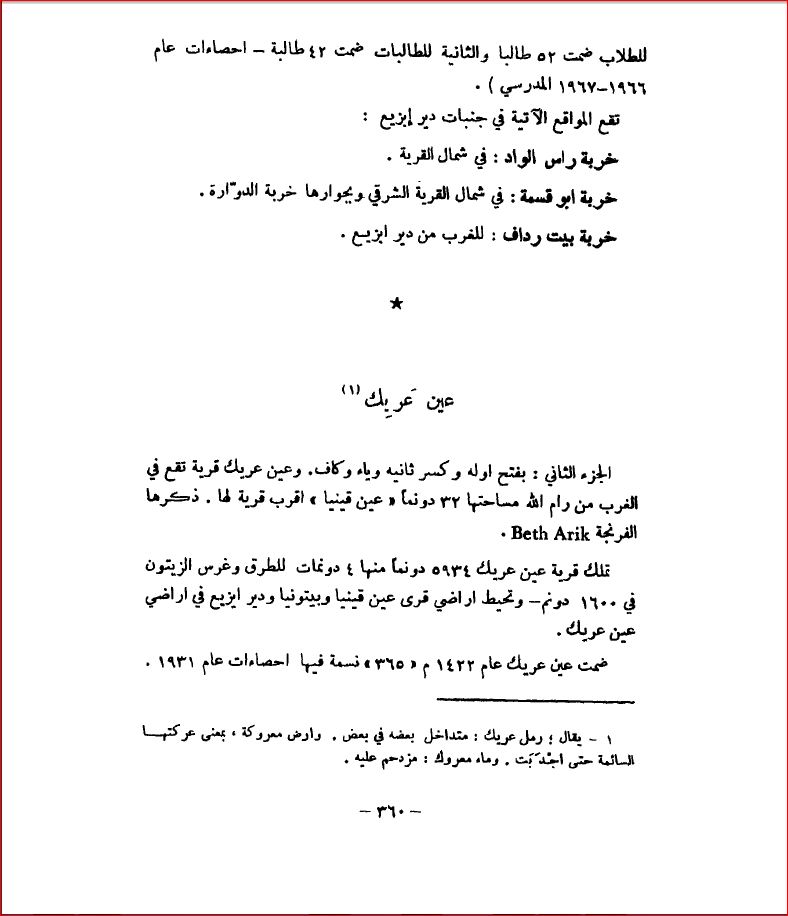 للطلاب ضمت ٥٢ طالبا والثانية للطالبات ضمت ٤٢ طالبة – احصاءات عام
١٩٦٦–١٩٦٧ المدرسي ) .
تقع المواقع الآتية في جنبات دير إبزيع :
خربة راس الواد : في شمال القرية .
خربة ابو قسمة : في شمال القرية الشرقي وبجوارها خربة الدوّارة .
خربة بيت رداف : للغرب من دير ابزيع .
★
عين عَرِيك (١)
الجزء الثاني : بفتح اوله وكسر ثانيه وياء وكاف. وعين عريك قرية تقع في
الغرب من رام الله مساحتها ٣٢ دونماً « عين قينيا » اقرب قرية لها . ذكرها
الفرنجة Beth Arik .
تملك قرية عين عريك ٥٩٣٤ دونماً منها ٤ دونمات للطرق وغرس الزيتون
في ١٦٠٠ دونم– وتحيط اراضي قرى عين قينيا وبيتونيا ودير ابزيع في اراضي
عين عريك .
ضمت عين عريك عام ١٤٢٢ م « ٣٦٥ » نسمة فيها احصاءات عام ١٩٣١ .
١ – يقال ؛ رمل عريك : متداخل بعضه في بعض . وارض معروكة ، بمعنى عركتهـا
السائمة حتى اجْدَبَت . وماء معروك : مزدحم عليه .
– ٣٦٠ –